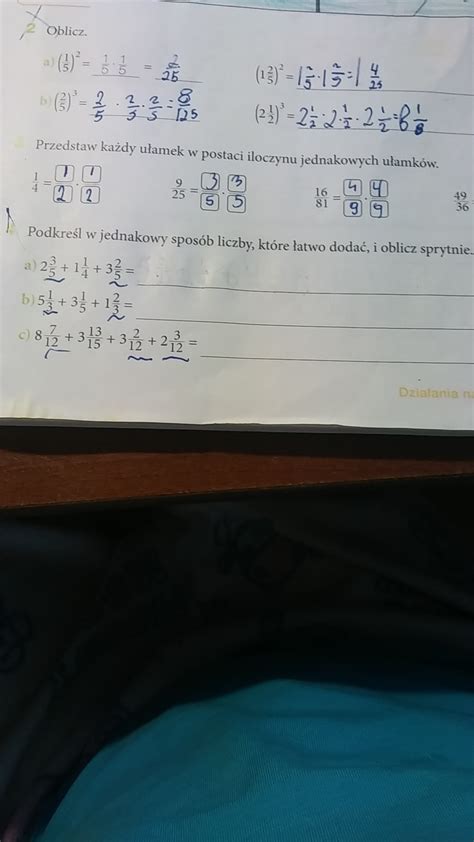 2 Oblicz.
a) (1/5)² = 1/5 · 1/5 = 2/25 (1 2/5)² = 1 2/5 · 1 2/5 = 1 4/25
b) (2/5)³ = 2/5 · 2/5 · 2/5 = 8/125 (2 1/2)³ = 2 1/2 · 2 1/2 · 2 1/2 = 8 1/8
Przedstaw każdy ułamek w postaci iloczynu jednakowych ułamków.
1/4 = 1/2 · 1/2 9/25 = 3/5 · 3/5 16/81 = 4/9 · 4/9 49/36
Podkreśl w jednakowy sposób liczby, które łatwo dodać, i oblicz sprytnie.
a) 2 3/5 + 1 1/4 + 3 2/5 =
b) 5 1/3 + 3 1/5 + 1 2/3 =
c) 8 7/12 + 3 13/15 + 3 2/12 + 2 3/12 =
Działania na